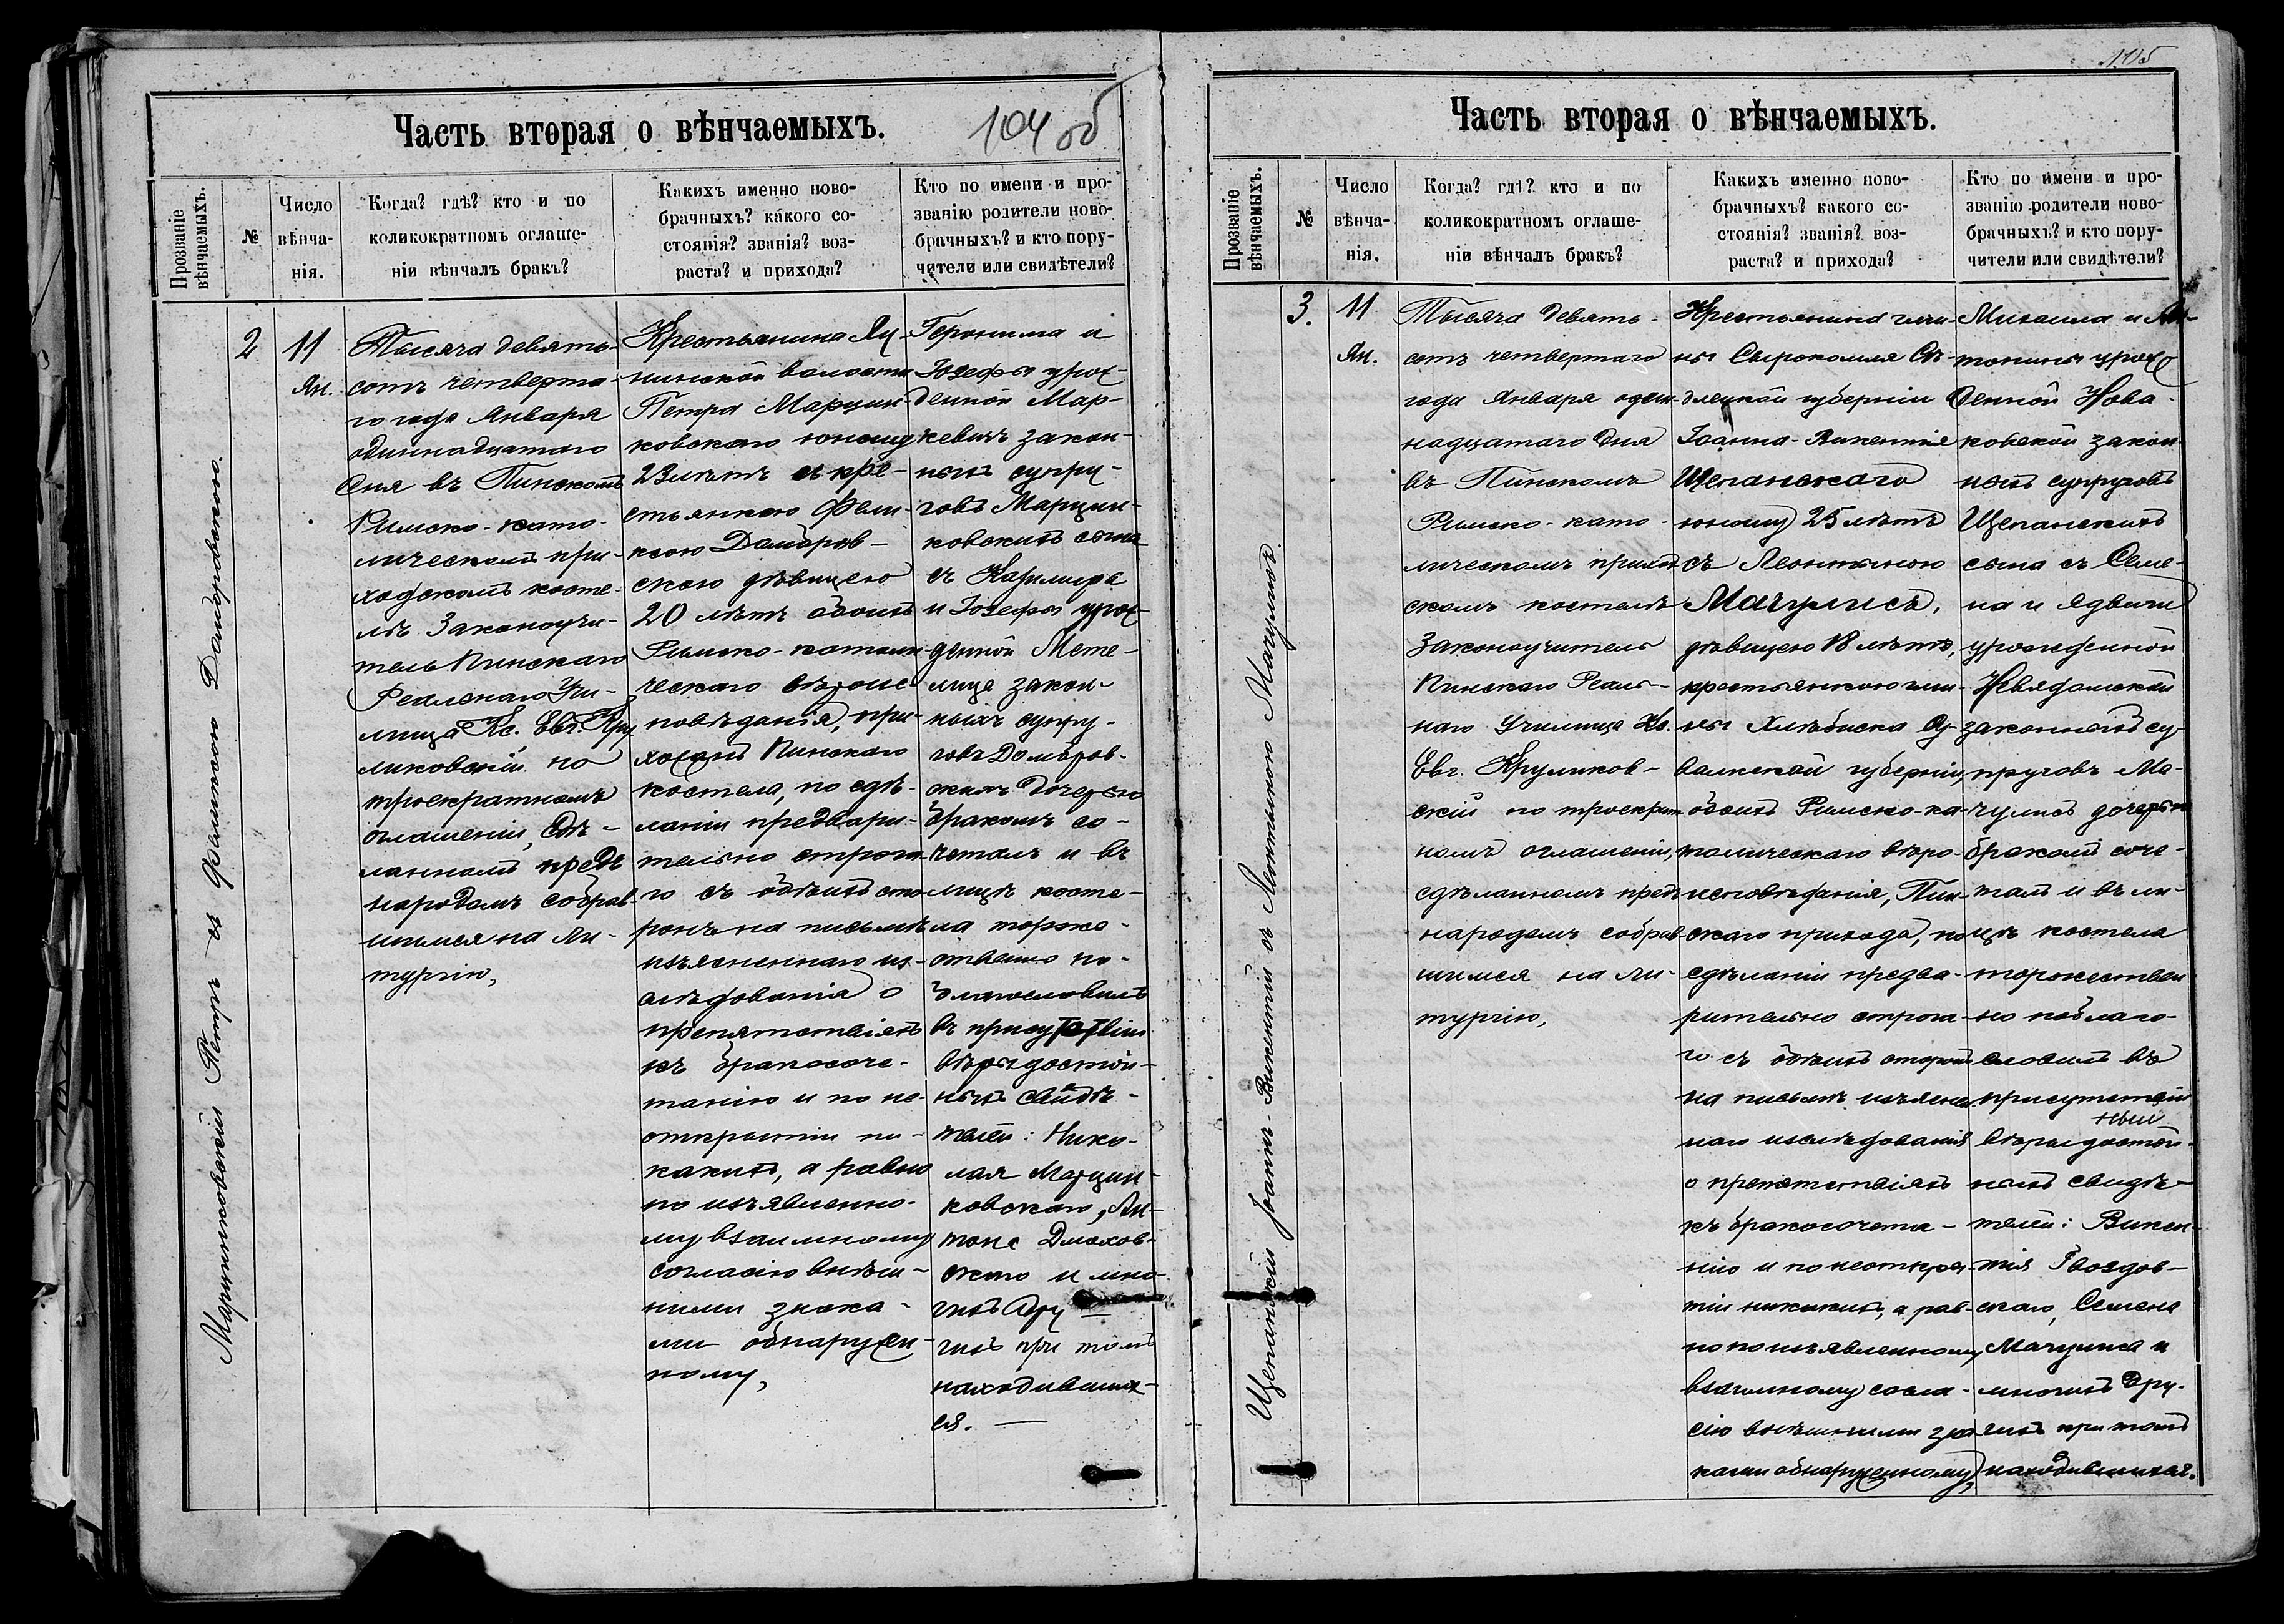 Часть вторая о вѣнчаемыхъ.
104 об
Прозваніе вѣнчаемыхъ.
№
Число
вѣнча-
нія.
Когда? гдѣ? кто и по
коликократномъ оглаше-
ніи вѣнчалъ бракъ?
Какихъ именно ново-
брачныхъ? какого со-
стоянія? званія? воз-
раста? и прихода?
Кто по имени и про-
званію родители ново-
брачныхъ? и кто пору-
чители или свидѣтели?
Марцинковскій Петръ съ Феликсою Домбровскою.
2
11
Ян.
Тысяча девять-
сотъ четверта-
го года Января
одиннадцатаго
дня въ Пинскомъ
Римско-като-
лическомъ при-
ходскомъ косте-
лѣ Законоучи-
тель Пинскаго
Реальнаго Учи-
лища Кс. Евг. Кру
ликовскій по
троекратномъ
оглашеніи, сдѣ-
ланномъ предъ
народомъ собрав-
шимся на Ли-
тургію,
Крестьянина Яц-
нинской волости
Петра Марцин-
ковскаго юношу
23 лѣтъ съ кре-
стьянкою Фели-
ксою Домбров-
скою дѣвицею
20 лѣтъ обоихъ
Римско-католи-
ческаго вѣроис-
повѣданія, при-
хожанъ Пинскаго
костела, по сдѣ-
ланіи предвари-
тельно строга-
го съ обѣихъ сто
ронъ на письмѣ
изъясненнаго из-
слѣдованія о
препятствіяхъ
къ бракосоче-
танію и по не-
открытіи ни-
какихъ, а равно
по изъявленно-
му взаимному
согласію внѣш-
ними знака-
ми обнаружен-
ному,
Геронима и
Іозефы урож-
денной Мар-
кевичъ закон-
ныхъ супру-
говъ Марцин-
ковскихъ сына
съ Казимира
и Іозефы урож-
денной Мете-
лица закон-
ныхъ супру-
говъ Домбров-
скихъ дочерью
бракомъ со-
четалъ и въ
лицѣ косте-
ла торже-
ственно по-
благословилъ
въ присутствіи
вѣрыдостой-
ныхъ свидѣ-
телей: Нико-
лая Марцин-
ковскаго, Ан-
тона Дмохов-
скаго и мно-
гихъ дру-
гихъ при томъ
находивших-
ся.
105
Часть вторая о вѣнчаемыхъ.
Прозваніе вѣнчаемыхъ.
№
Число
вѣнча-
нія.
Когда? гдѣ? кто и по
коликократномъ оглаше-
ніи вѣнчалъ бракъ?
Какихъ именно ново-
брачныхъ? какого со-
стоянія? званія? воз-
раста? и прихода?
Кто по имени и про-
званію родители ново-
брачныхъ? и кто пору-
чители или свидѣтели?
Щепанскій Іоаннъ-Викентій съ Леонтыною Мачулисъ
3.
11
Ян.
Тысяча девять-
сотъ четвертаго
года Января один-
надцатаго дня
въ Пинскомъ
Римско-като-
лическомъ приход
скомъ костелѣ
Законоучитель
Пинскаго Реаль-
наго Училища Кс.
Евг. Круликов-
скій по троекрат
номъ оглашеніи,
сдѣланномъ предъ
народомъ собрав-
шимся на Ли-
тургію,
Крестьянина гми-
ны Сырокомля Сѣ-
длецкой губерніи
Іоанна-Викентія
Щепанскаго
юношу 25 лѣтъ
съ Леонтыною
Мачулисъ,
дѣвицею 18 лѣтъ,
крестьянкою гми-
ны Хлѣбиска Су-
валкской губерніи,
обоихъ Римско-ка-
толическаго вѣро-
исповѣданія, Пин-
скаго прихода, по
сдѣланіи предва-
рительно строга-
го съ обѣихъ сторонъ
на письмѣ изъяснен-
наго изслѣдованія
о препятствіяхъ
къ бракосочета-
нію и по неоткры-
тіи никакихъ, а рав-
но по изъявленному
взаимному согла-
сію внѣшними зна-
ками обнаруженному,
Михаила и Ан-
тонины урож-
денной Нова-
ковской закон-
ныхъ супруговъ
Щепанскихъ
сына съ Семе-
на и Ядвиги
урожденной
Невядомской
законныхъ су-
пруговъ Ма-
чулисъ дочерью
бракомъ соче-
талъ и въ ли-
цѣ костела
торжествен-
но поблаго-
словилъ въ
присутствіи
вѣрыдостой-
ныхъ свидѣ-
телей: Викен-
тія Гвоздов-
скаго, Семена
Мачулиса и
многихъ дру-
гихъ при томъ
находившихся.